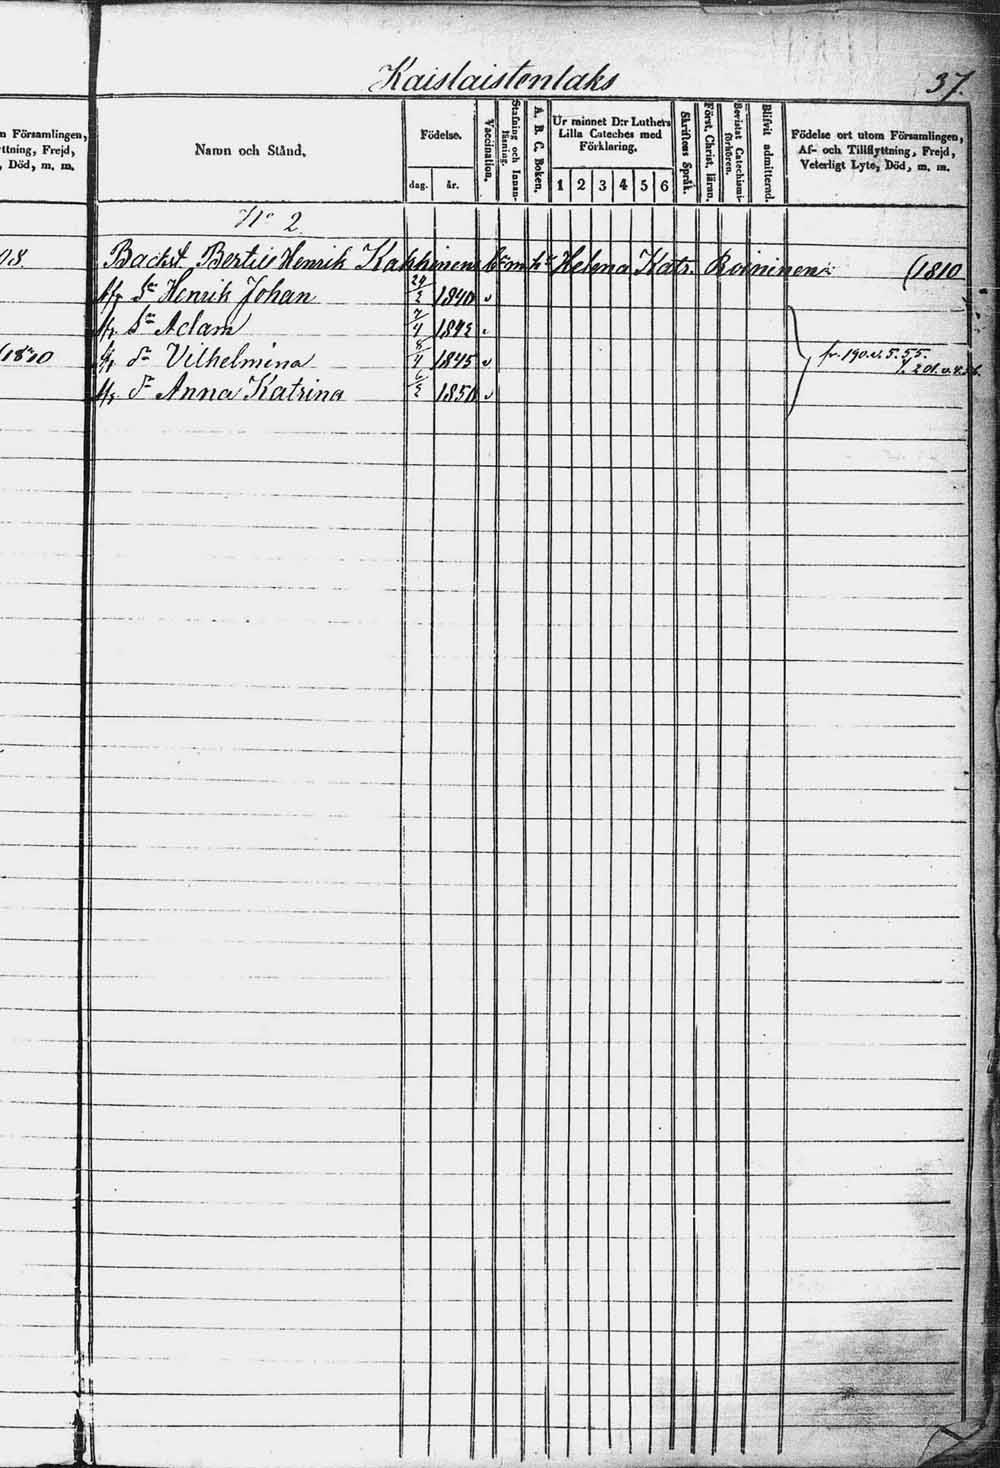 Kaislaistenlaks
37.
n Församlingen,
ttning, Frejd,
, Död, m. m.
Namn och Stånd.
Födelse.
dag.
år.
Vaccination.
Stafning och Innan-
läsning.
A. B. C. Boken.
Ur minnet D:r Luthers
Lilla Cateches med
Förklaring.
1 2 3 4 5 6
Skriftens Språk.
Först. Christ. läran.
Bevistat Catechismi-
förhören.
Blifvit admitterad.
Födelse ort utom Församlingen,
Af- och Tillflyttning, Frejd,
Veterligt Lyte, Död, m. m.
No 2
08.
Backst. Bertil Henrik Kakkinens Helena Katr. Roininen (1810
Sn Henrik Johan 29/2 1840 v
Sn Adam 7/4 1842
(1870
dr Vilhelmina 8/4 1845 v
fr. 190. v. 5. 55.
dr Anna Katrina 6/2 1850 v